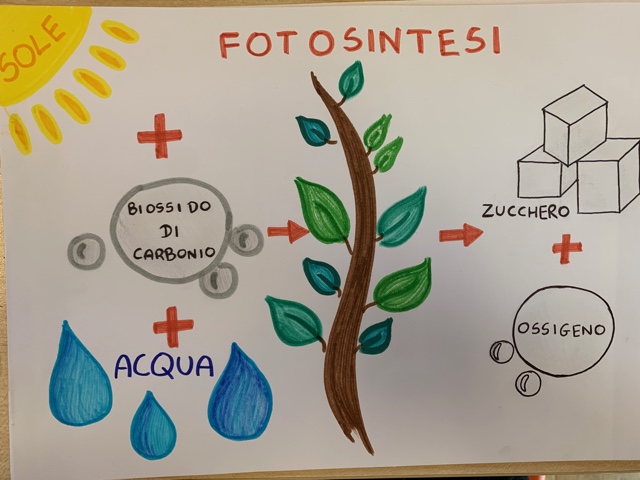 FOTOSINTESI
SOLE
+
BIOSSIDO
DI
CARBONIO
+
ACQUA
ZUCCHERO
+
OSSIGENO